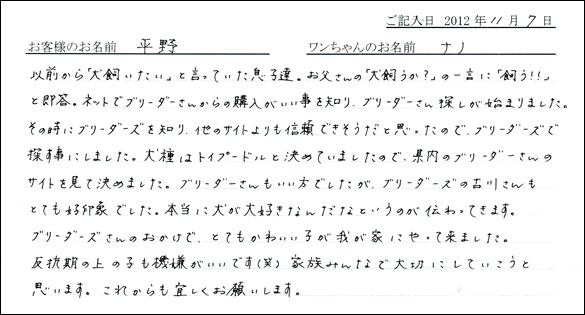 ご記入日 2012年 11月 7日
お客様のお名前 平野 ワンちゃんのお名前 ナノ
以前から「犬飼いたい」と言っていた息子達。お父さんの「犬飼うか?」の一言に「飼う!!」
と即答。ネットでブリーダーさんからの購入がいい事を知り、ブリーダーさん探しが始まりました。
その時にブリーダーズを知り、他のサイトよりも信頼できそうだと思ったので、ブリーダーズで
探す事にしました。犬種はトイプードルと決めていましたので、県内のブリーダーさんの
サイトを見て決めました。ブリーダーさんもいい方でしたが、ブリーダーズの古川さんも
とても好印象でした。本当に犬が大好きなんだなというのが伝わってきます。
ブリーダーズさんのおかげで、とてもかわいい子が我が家にやって来ました。
反抗期の上の子も機嫌がいいです(笑) 家族みんなで大切にしていこうと
思います。これからも宜しくお願いします。